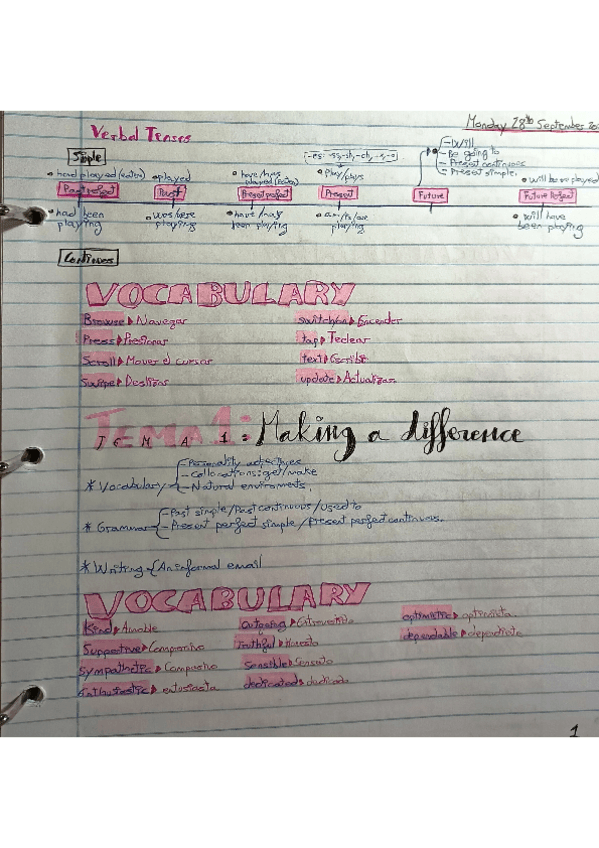 Monday 28th September
Verbal Tenses
Simple
(-es: -ss, -sh, -ch, -x, -o)
- Will
- Be going to
- Present continuous
- Present simple.
• had played (eaten) • played • have/has played (eaten) • play/plays • will have played
Past perfect Past Present perfect Present Future Future Perfect
• had been playing • was/were playing • have/has been playing • am/is/are playing • will have been playing
Continuous
VOCABULARY
Browse ▸ Navegar switch on ▸ Encender
Press ▸ Presionar tap ▸ Teclear
Scroll ▸ Mover el cursor text ▸ Escribir
Swipe ▸ Deslizar update ▸ Actualizar
TEMA 1: Making a difference
* Vocabulary
- Personality adjectives
- Collocations: get/make
- Natural enviroments.
* Grammar
- Past simple/Past continuous/Used to
- Present perfect simple/Present perfect continuous.
* Writing { An informal email
VOCABULARY
Kind ▸ Amable Outgoing ▸ Extrovertido optimistic ▸ optimista
Supportive ▸ Comprensivo Truthful ▸ Honesto dependable ▸
Sympathetic ▸ Compasivo Sensible ▸ Sensato
Enthusiastic ▸ entusiasta dedicated ▸ dedicado
1